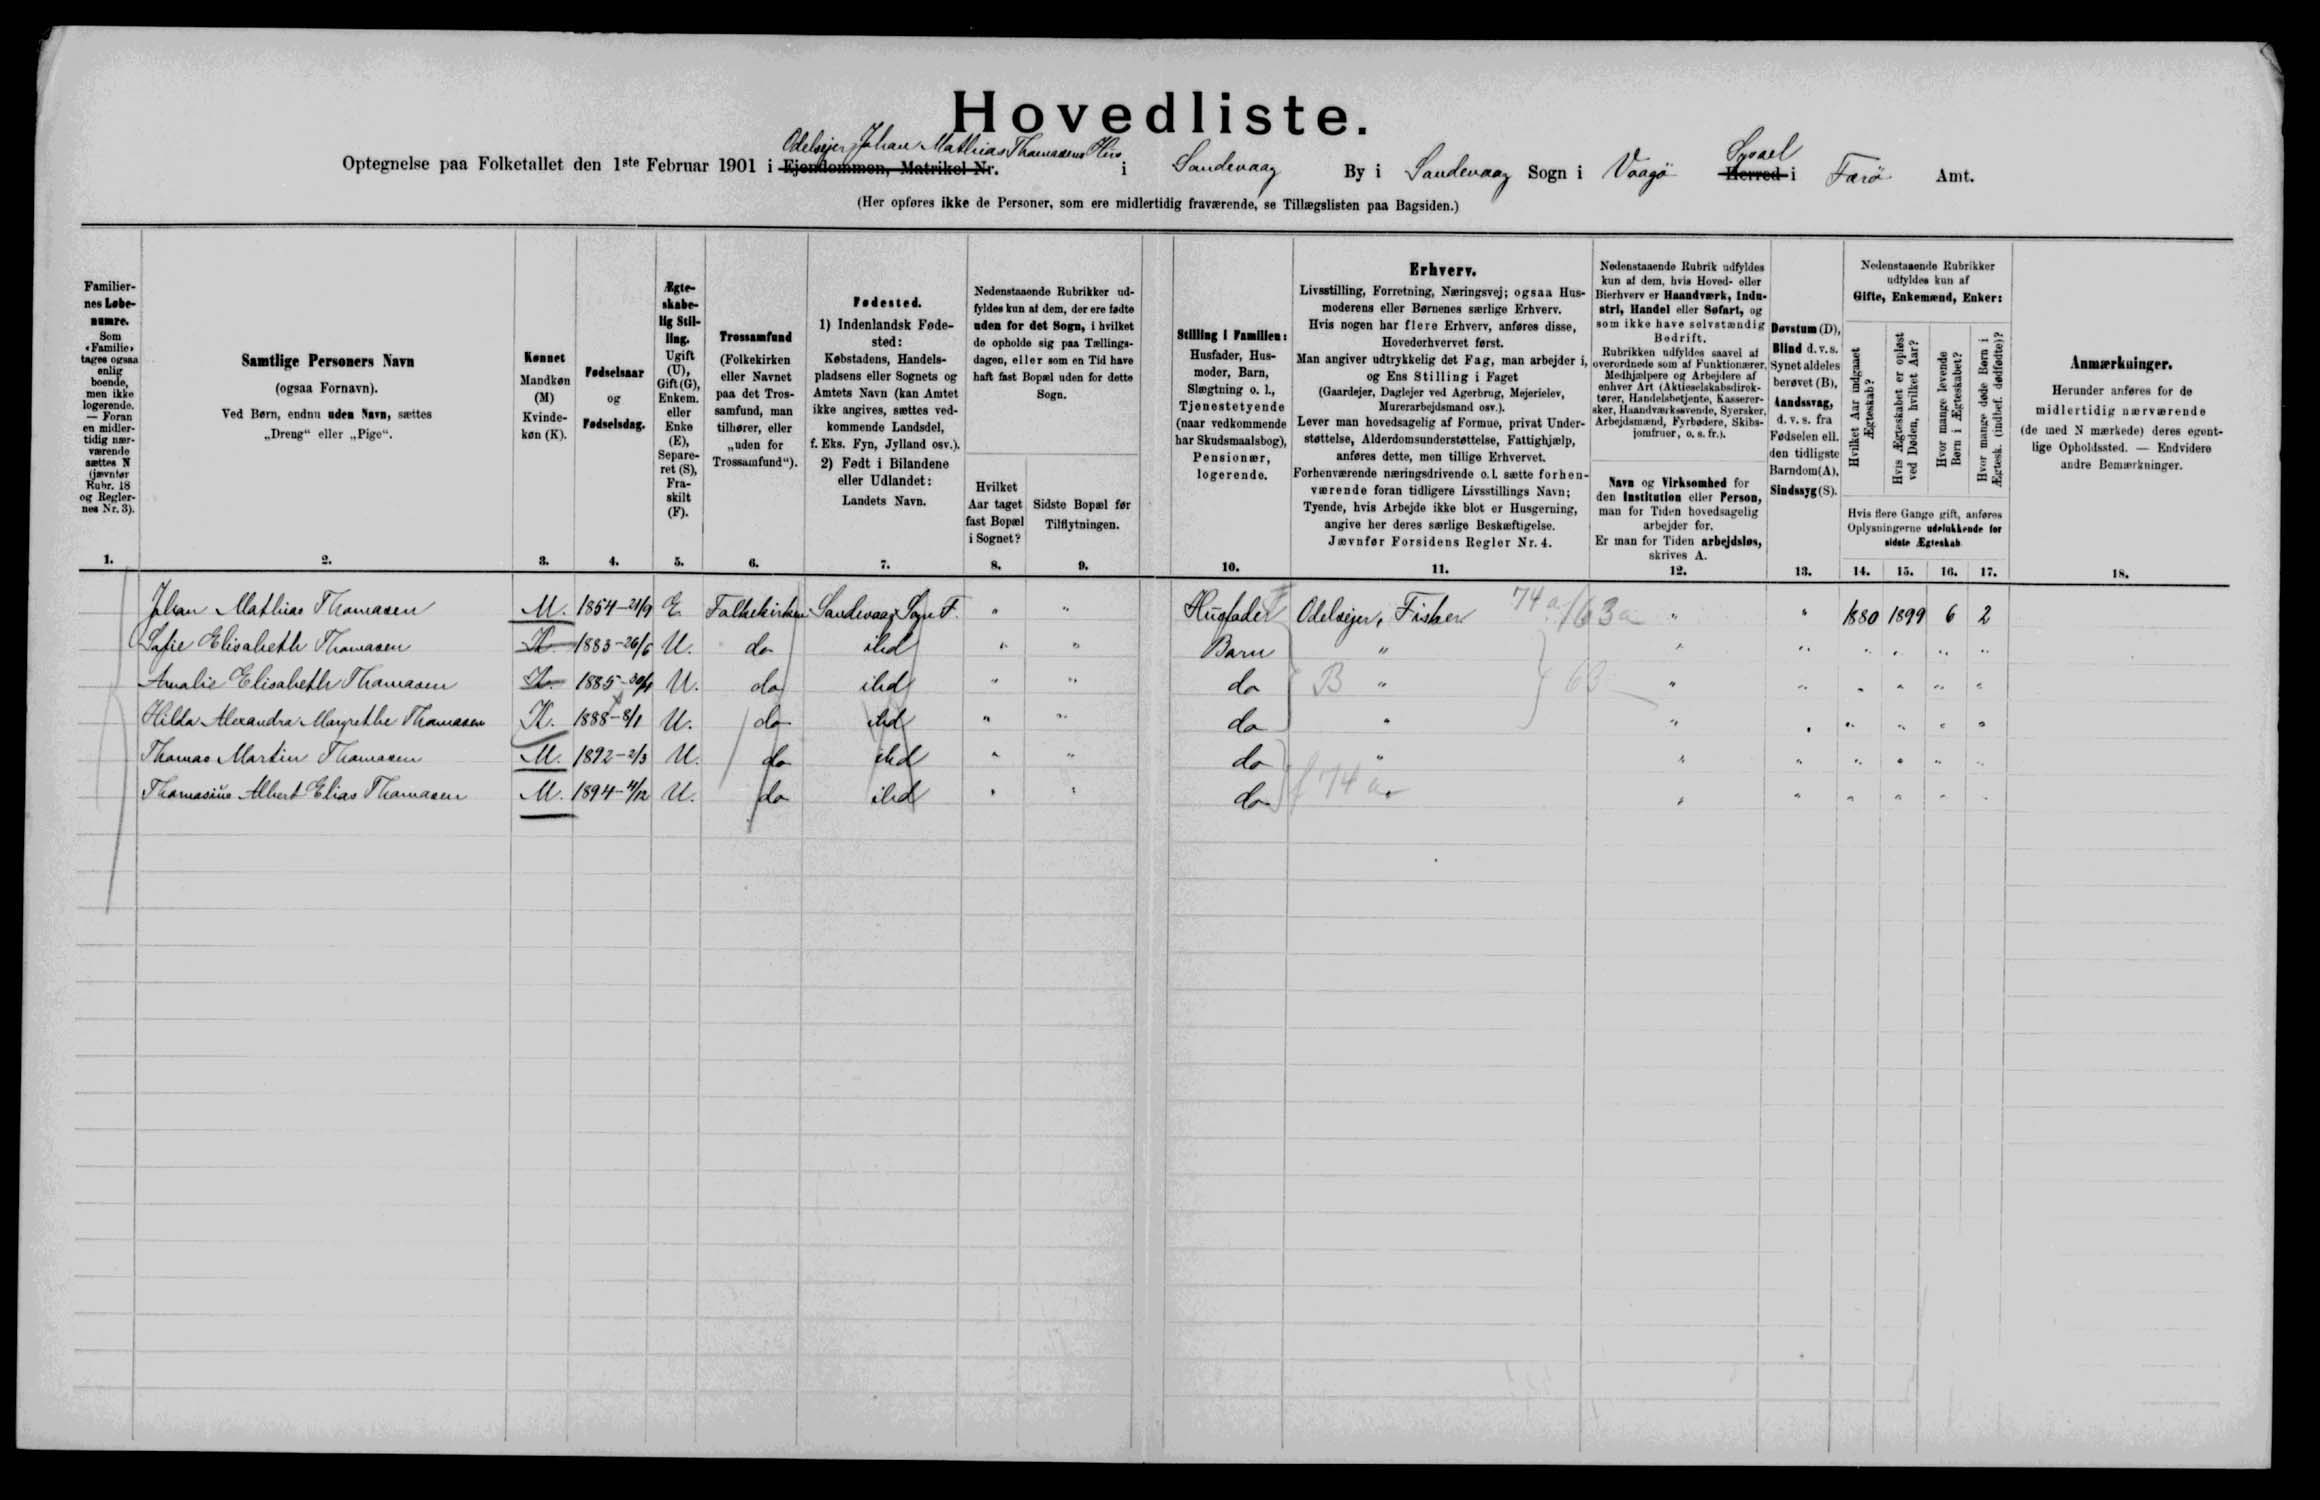 Hovedliste.
Odelsejer Johan Mathias Thomasens Hus
Optegnelse paa Folketallet den 1ste Februar 1901 i Ejendommen, Matrikel Nr. i Sandevaag By i Sandevaag Sogn i Vaagø Herred Syssel i Færø Amt.
(Her opføres ikke de Personer, som ere midlertidig fraværende, se Tillægslisten paa Bagsiden.)
Familier-
nes Løbe-
numre.
Som
«Familie»
tages ogsaa
enlig
boende,
men ikke
logerende.
— Foran
en midler-
tidig nær-
værende
sættes N
(jævnfør
Rubr. 18
og Regler-
nes Nr. 3).
1.
Samtlige Personers Navn
(ogsaa Fornavn).
Ved Børn, endnu uden Navn, sættes
„Dreng“ eller „Pige“.
2.
Kønnet
Mandkøn
(M)
Kvinde-
køn (K).
3.
Fødselsaar
og
Fødselsdag.
4.
Ægte-
skabe-
lig Stil-
ling.
Ugift
(U),
Gift (G),
Enkem.
eller
Enke
(E),
Separe-
ret (S),
Fra-
skilt
(F).
5.
Trossamfund
(Folkekirken
eller Navnet
paa det Tros-
samfund, man
tilhører, eller
„uden for
Trossamfund“).
6.
Fødested.
1) Indenlandsk Føde-
sted:
Købstadens, Handels-
pladsens eller Sognets og
Amtets Navn (kan Amtet
ikke angives, sættes ved-
kommende Landsdel,
f. Eks. Fyn, Jylland osv.).
2) Født i Bilandene
eller Udlandet:
Landets Navn.
7.
Nedenstaaende Rubrikker ud-
fyldes kun af dem, der ere fødte
uden for det Sogn, i hvilket
de opholde sig paa Tællings-
dagen, eller som en Tid have
haft fast Bopæl uden for dette
Sogn.
Hvilket
Aar taget
fast Bopæl
i Sognet?
8.
Sidste Bopæl før
Tilflytningen.
9.
Stilling i Familien:
Husfader, Hus-
moder, Barn,
Slægtning o. l.,
Tjenestetyende
(naar vedkommende
har Skudsmaalsbog),
Pensionær,
logerende.
10.
Erhverv.
Livsstilling, Forretning, Næringsvej; ogsaa Hus-
moderens eller Børnenes særlige Erhverv.
Hvis nogen har flere Erhverv, anføres disse,
Hovederhvervet først.
Man angiver udtrykkelig det Fag, man arbejder i,
og Ens Stilling i Faget
(Gaardejer, Daglejer ved Agerbrug, Mejerielev,
Murerarbejdsmand osv.).
Lever man hovedsagelig af Formue, privat Under-
støttelse, Alderdomsunderstøttelse, Fattighjælp,
anføres dette, men tillige Erhvervet.
Forhenværende næringsdrivende o. l. sætte forhen-
værende foran tidligere Livsstillings Navn;
Tyende, hvis Arbejde ikke blot er Husgerning,
angive her deres særlige Beskæftigelse.
Jævnfør Forsidens Regler Nr. 4.
11.
Nedenstaaende Rubrik udfyldes
kun af dem, hvis Hoved- eller
Bierhverv er Haandværk, Indu-
stri, Handel eller Søfart, og
som ikke have selvstændig
Bedrift.
Rubrikken udfyldes saavel af
overordnede som af Funktionærer,
Medhjælpere og Arbejdere af
enhver Art (Aktieselskabsdirek-
tører, Handelsbetjente, Kasserer-
sker, Haandværkssvende, Syersker,
Arbejdsmænd, Fyrbødere, Skibs-
jomfruer, o. s. fr.).
Navn og Virksomhed for
den Institution eller Person,
man for Tiden hovedsagelig
arbejder for.
Er man for Tiden arbejdsløs,
skrives A.
12.
Døvstum (D),
Blind d. v. s.
Synet aldeles
berøvet (B),
Aandssvag,
d. v. s. fra
Fødselen ell.
den tidligste
Barndom (A),
Sindssyg (S).
13.
Nedenstaaende Rubrikker
udfyldes kun af
Gifte, Enkemænd, Enker:
Hvilket Aar indgaaet
Ægteskab?
Hvis Ægteskabet er opløst
ved Døden, hvilket Aar?
Hvor mange levende
Børn i Ægteskabet?
Hvor mange døde Børn i
Ægtesk. (indbef. dødfødte)?
Hvis flere Gange gift, anføres
Oplysningerne udelukkende for
sidste Ægteskab
14. 15. 16. 17.
Anmærkninger.
Herunder anføres for de
midlertidig nærværende
(de med N mærkede) deres egent-
lige Opholdssted. — Endvidere
andre Bemærkninger.
18.
Johan Mathias Thomasen M. 1854-21/9 E. Folkekirken Sandevaag Sogn F. " " Husfader Odelsejer, Fisker 74a/63a " " 1880 1899 6 2
Sofie Elisabeth Thomasen K 1883-26/6 U. do ibd " " Barn " " " " " " "
Amalie Elisabeth Thomasen K. 1885-30/4 U. do ibd " " do B " 63 " " " " " "
Hilda Alexandra Margrethe Thomasen K. 1888-8/1 U. do ibd " " do " " " " " " "
Thomas Martin Thomasen M. 1892-2/3 U. do ibd " " do " " " " " " "
Thomasius Albert Elias Thomasen M. 1894-4/12 U. do ibd " " do f 74 a " " " " " "